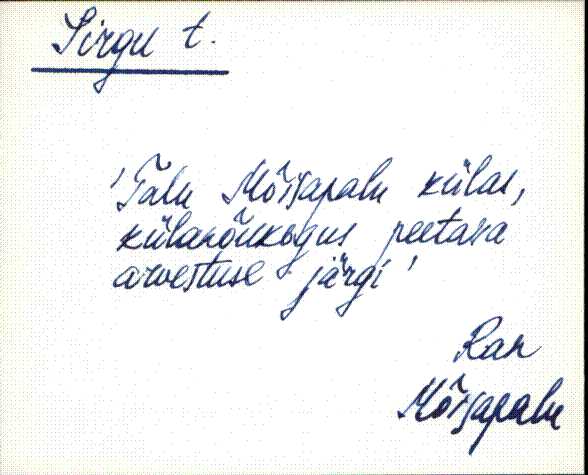 Sirgu t.
'Talu Mõisapalu külas,
külanõukogus peetava
arvestuse järgi'
Ran
Mõisapalu